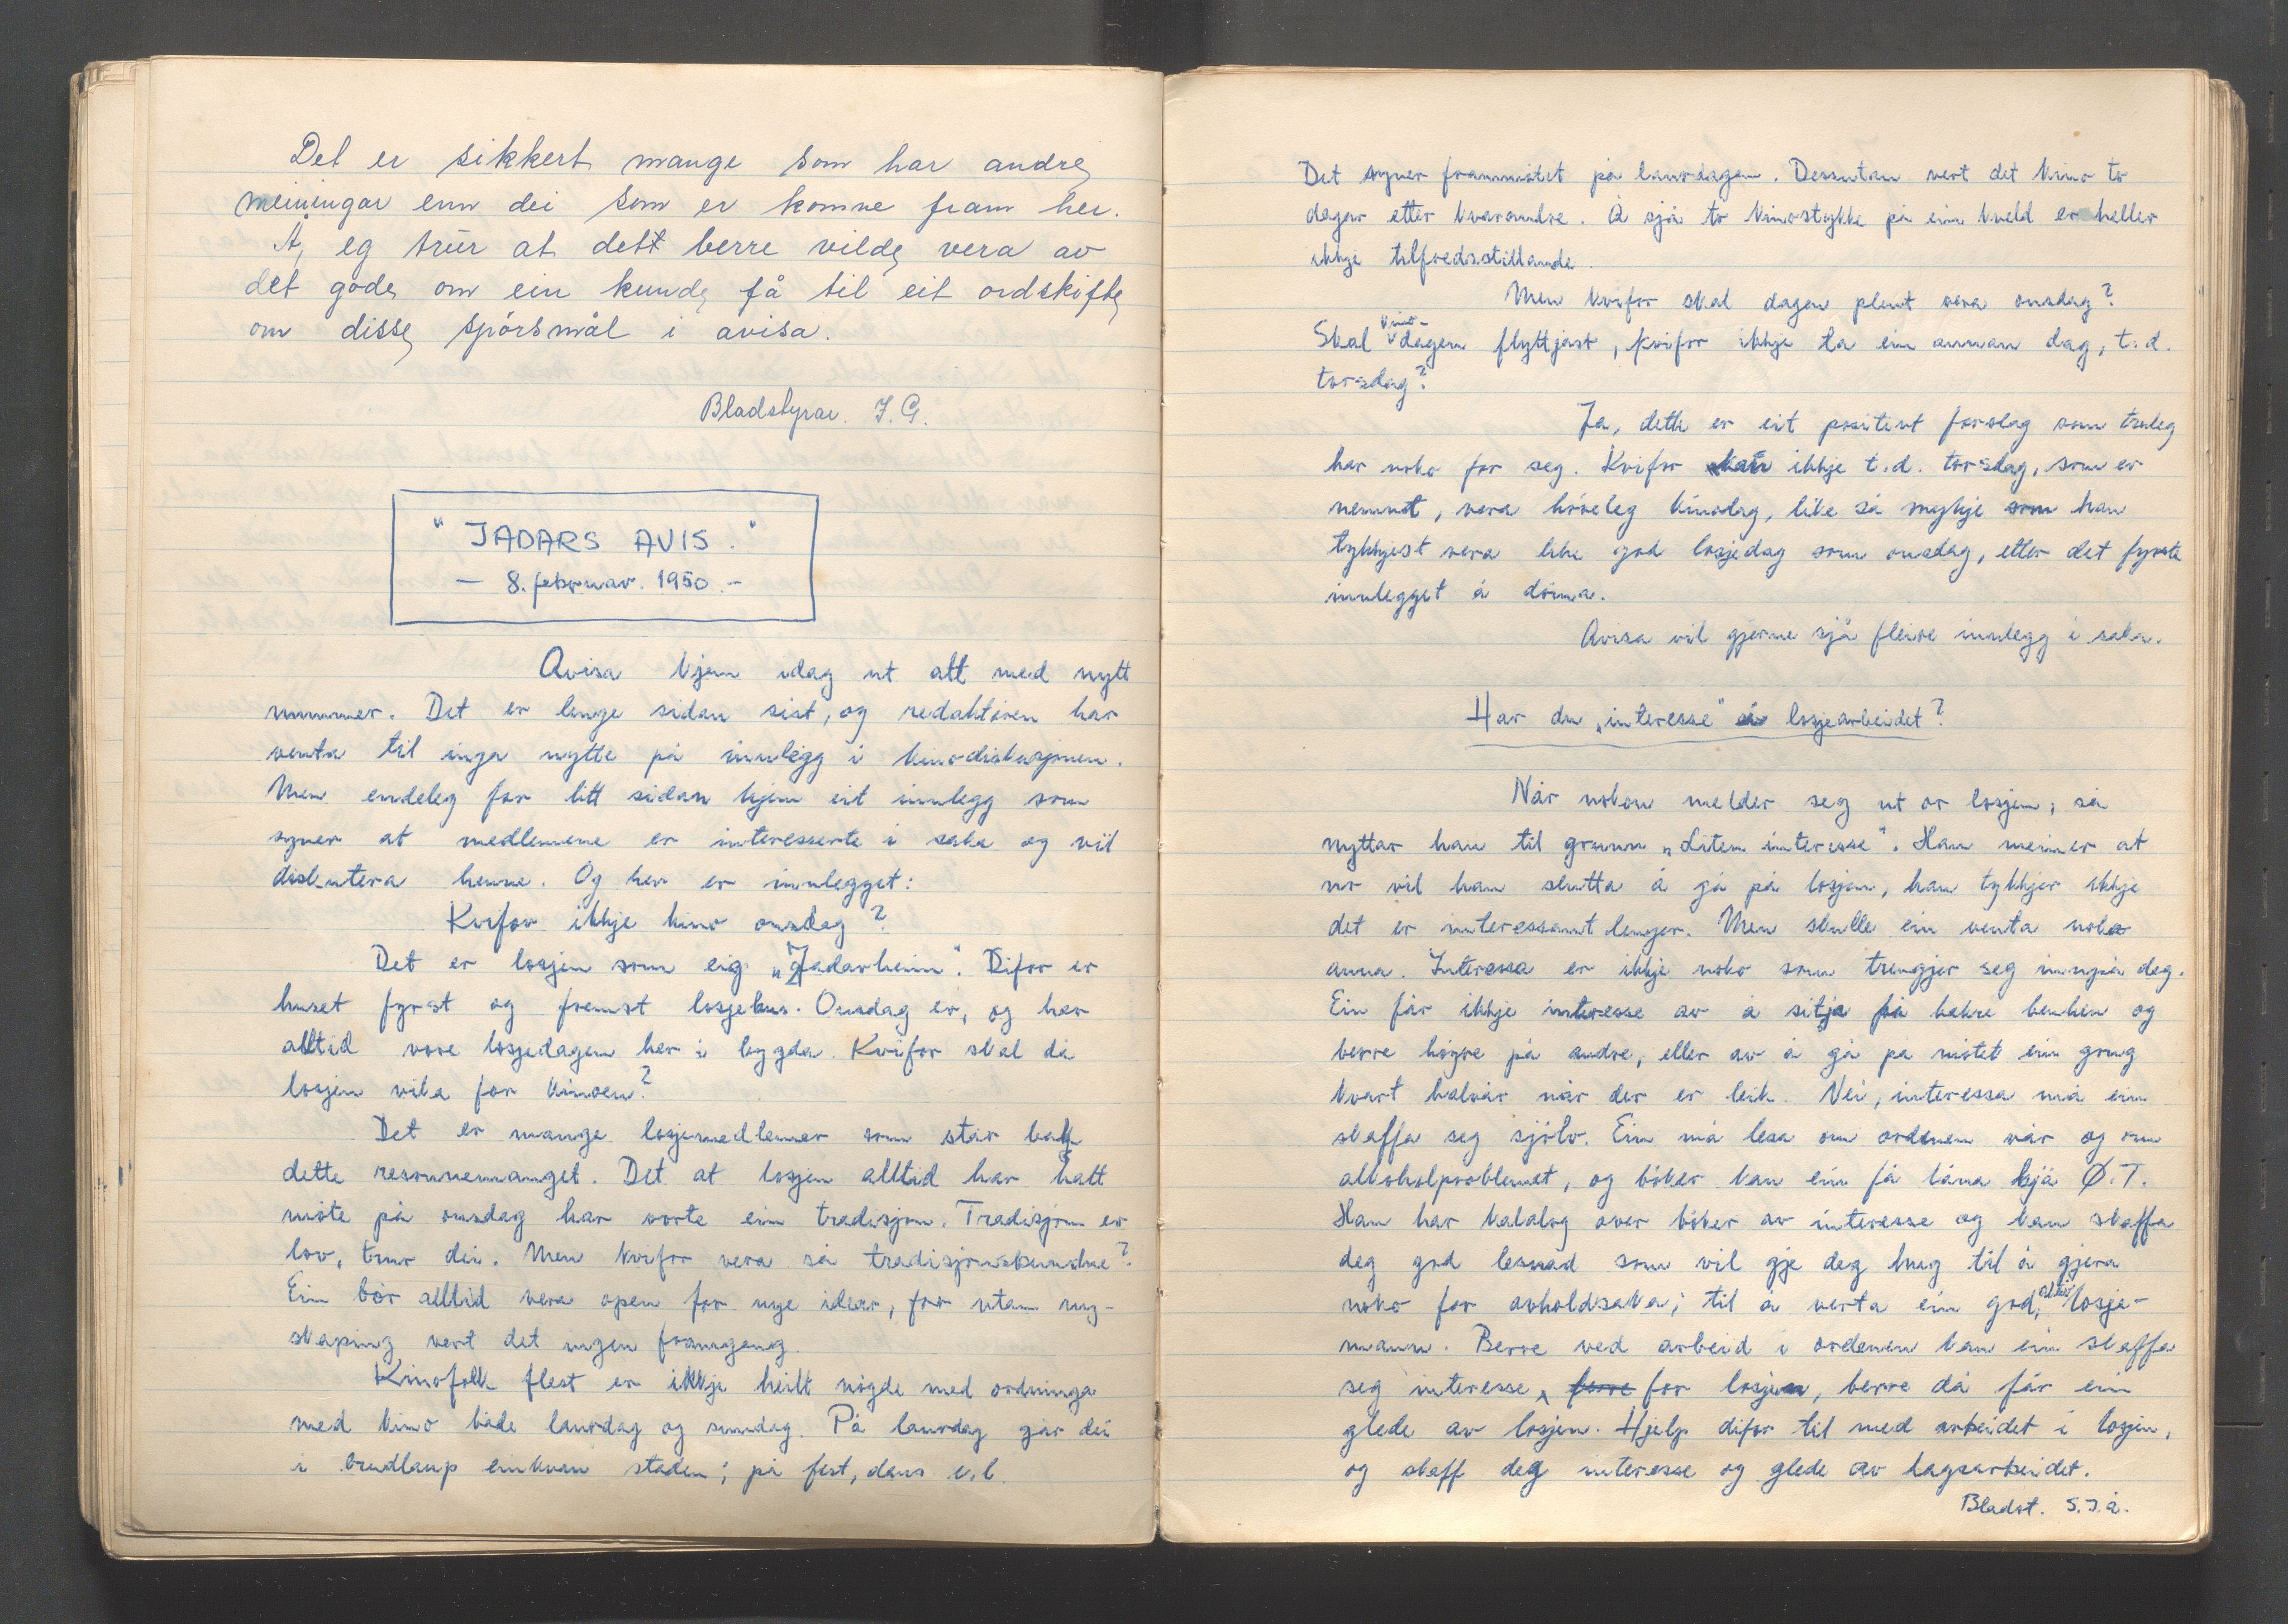 Det er sikkert mange som har andre
meiningar enn dei som er komne fram her.
Å, eg trur at dett berre vilde vera av
det gode om ein kunde få til eit ordskifte
om disse spörsmål i avisa.
Bladstyrar. J. G.
"JADARS AVIS."
— 8. februar. 1950. –
Avisa kjem idag ut att med nytt
nummer. Det er lenge sidan sist, og redaktören har
venta til inga nytte på innlegg i kinodiskusjonen.
Men endeleg for litt sidan kjem eit innlegg som
syner at medlemmene er interesserte i saka og vil
diskutera henne. Og her er innlegget:
Kvifor ikkje kino onsdag?
Det er losjen som eig „Jadarheim". Difor er
huset fyrst og fremst losjehus. Onsdag er, og har
alltid vore losjedagen her i bygda. Kvifor skal då
losjen vika for kinoen?
Det er mange losjemedlemer som står bak
dette resonnemanget. Det at losjen alltid har hatt
möte på onsdag har vorte ein tradisjon. Tradisjon er
lov, trur dei. Men kvifor vera så tradisjonsbundne?
Ein bör alltid vera open for nye idear, for utan ny-
skaping vert det ingen framgang.
Kinofolk flest er ikkje heilt nögde med ordninga
med kino både laurdag og sundag. På laurdag går dei
i brudlaup einkvan staden; på fest, dans e.l.
Det syner frammötet på laurdagen. Dessutan vert det kino to
dagar etter kvarandre. Å sjå to kinostykke på ein kveld er heller
ikkje tilfredsstillande.
Men kvifor skal dagen plent vera onsdag?
Skal kino-dagen flyttjast, kvifor ikkje ta ein annan dag, t.d.
torsdag?
Ja, dette er eit positivt forslag som truleg
har noko for seg. Kvifor kan ikkje t.d. torsdag, som er
nemnt, vera höveleg kinodag, like så mykje som han
tykkjest vera like god losjedag som onsdag, etter det fyrste
innlegget å döma.
Avisa vil gjerne sjå fleire innlegg i saka.
Har du „interesse" losjearbeidet?
Når nokon melder seg ut or losjen, så
nyttar han til grunn „Liten interesse". Han meiner at
no vil han slutta å gå på losjen, han tykkjer ikkje
det er interessant lenger. Men skulle ein venta noko
anna. Interessa er ikkje noko som trengjer seg innpå deg.
Ein får ikkje interesse av å sitja på bakre benken og
berre högre på andre, eller av å gå på mötet ein gong
kvart halvår når der er leik. Nei, interessa må ein
skaffa seg sjölv. Ein må lesa om ordenen vår og om
alkoholproblemet, og böker kan ein få låna hjå Ø.T.
Han har katalog over böker av interesse og kan skaffa
deg god lesnad som vil gje deg hug til å gjera
noko for avholdsaka; til å verta ein god, aktiv losje-
mann. Berre ved arbeid i ordenen kan ein skaffa
seg interesse, for losjen, berre då får ein
glede av losjen. Hjelp difor til med arbeidet i losjen,
og skaff deg interesse og glede av lagsarbeidet.
Bladst. S.J.Å.